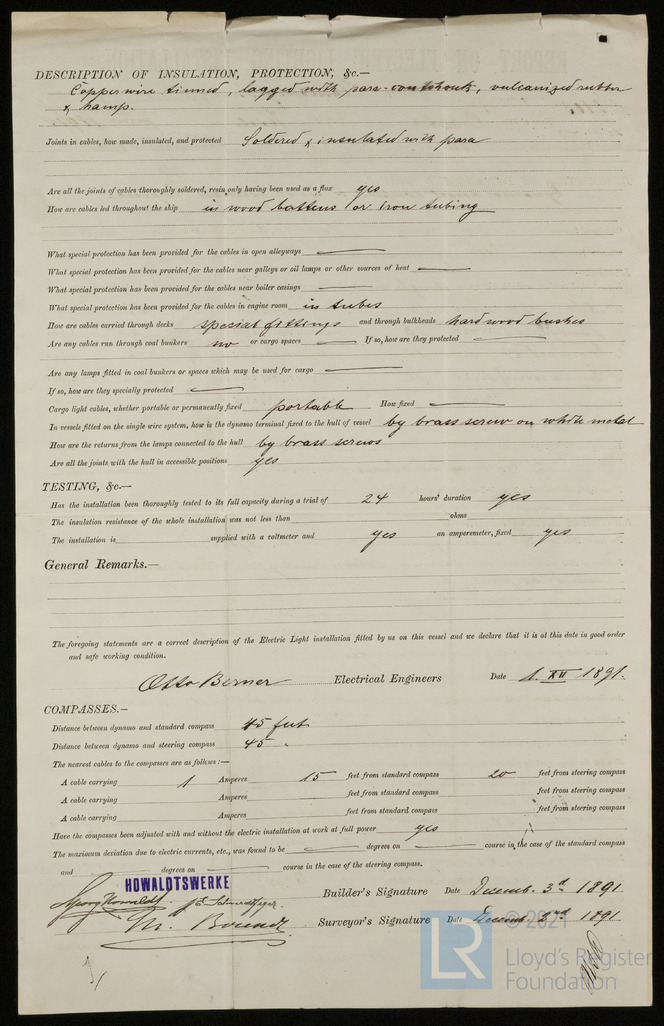 DESCRIPTION OF INSULATION, PROTECTION, &c.—
Copper wire tinned, lagged with para-, vulcanized rubber
& hamp.
Joints in cables, how made, insulated, and protected Soldered & insulated with para
Are all the joints of cables thoroughly soldered, resin only having been used as a flux yes
How are cables led throughout the ship in wood battens or iron tubing
What special protection has been provided for the cables in open alleyways —
What special protection has been provided for the cables near galleys or oil lamps or other sources of heat —
What special protection has been provided for the cables near boiler casings —
What special protection has been provided for the cables in engine room in tubes
How are cables carried through decks special fittings and through bulkheads hard wood bushes
Are any cables run through coal bunkers no or cargo spaces — If so, how are they protected —
Are any lamps fitted in coal bunkers or spaces which may be used for cargo —
If so, how are they specially protected —
Cargo light cables, whether portable or permanently fixed portable How fixed —
In vessels fitted on the single wire system, how is the dynamo terminal fixed to the hull of vessel by brass screw on white metal
How are the returns from the lamps connected to the hull by brass screws
Are all the joints with the hull in accessible positions yes
TESTING, &c.—
Has the installation been thoroughly tested to its full capacity during a trial of 24 hours' duration yes
The insulation resistance of the whole installation was not less than ohms
The installation is supplied with a voltmeter and yes an amperemeter, fixed yes
General Remarks.—
The foregoing statements are a correct description of the Electric Light installation fitted by us on this vessel and we declare that it is at this date in good order
and safe working condition.
Otto Berner Electrical Engineers Date 1. XII 1891.
COMPASSES.—
Distance between dynamo and standard compass 45 feet
Distance between dynamo and steering compass 45 "
The nearest cables to the compasses are as follows:—
A cable carrying 1 Amperes 15 feet from standard compass 20 feet from steering compass
A cable carrying Amperes feet from standard compass feet from steering compass
A cable carrying Amperes feet from standard compass feet from steering compass
Have the compasses been adjusted with and without the electric installation at work at full power yes
The maximum deviation due to electric currents, etc., was found to be — degrees on — course in the case of the standard compass
and — degrees on — course in the case of the steering compass.
HOWALDTSWERKE
Georg Howaldt Builder's Signature Date Decemb. 3d 1891
Surveyor's Signature Date Decemb. 1891
© 2021
LR
Lloyd's Register
Foundation